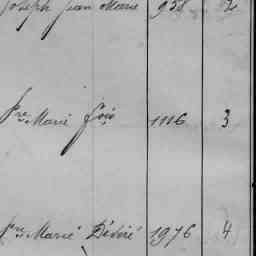 Joseph Jean Marie 958 2
Pre Marie fois 1116 3
Pre Marie Désiré 1976 4